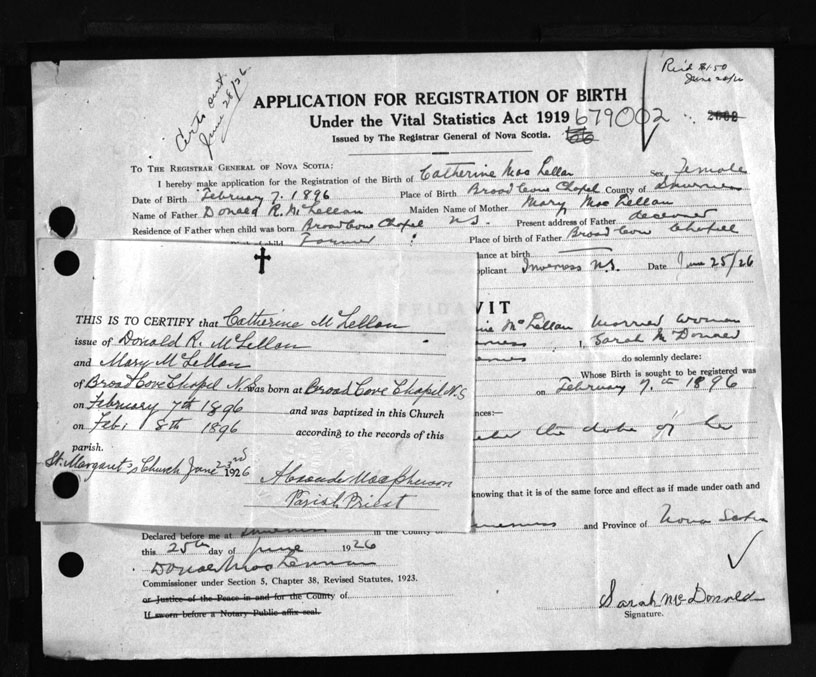 Certs out
June 28/26
Rec'd $1.50
June 26/26
APPLICATION FOR REGISTRATION OF BIRTH
Under the Vital Statistics Act 1919 679002
Issued by The Registrar General of Nova Scotia.
TO THE REGISTRAR GENERAL OF NOVA SCOTIA:
I hereby make application for the Registration of the Birth of Catherine MacLellan Sex Female
Date of Birth February 7. 1896 Place of Birth Broad Cove Chapel County of Inverness
Name of Father Donald R. McLellan Maiden Name of Mother Mary MacLellan
Residence of Father when child was born Broad Cove Chapel N.S. Present address of Father deceased
child Farmer Place of birth of Father Broad Cove Chapel
tance at birth
pplicant Inverness N.S. Date June 25/26
AFFIDAVIT
THIS IS TO CERTIFY that Catherine McLellan
issue of Donald R. McLellan
and Mary McLellan
of Broad Cove Chapel N.S. was born at Broad Cove Chapel N.S
on February 7th 1896 and was baptized in this Church
on Feb. 8th 1896 according to the records of this
parish.
St. Margaret's Church June 23rd 1926
Alexander Macpherson
Parish Priest
ine McLellan Married Woman
ness, Sarah McDonald
erness do solemnly declare:
Whose Birth is sought to be registered was
on February 7.th 1896
nces:—
the date of her
knowing that it is of the same force and effect as if made under oath and
Inverness and Province of Nova Scotia
Declared before me at Inverness in the County of
this 25th day of June 1926
Donald MacLennan
Commissioner under Section 5, Chapter 38, Revised Statutes, 1923.
or Justice of the Peace in and for the County of
If sworn before a Notary Public affix seal.
Sarah McDonald
Signature.